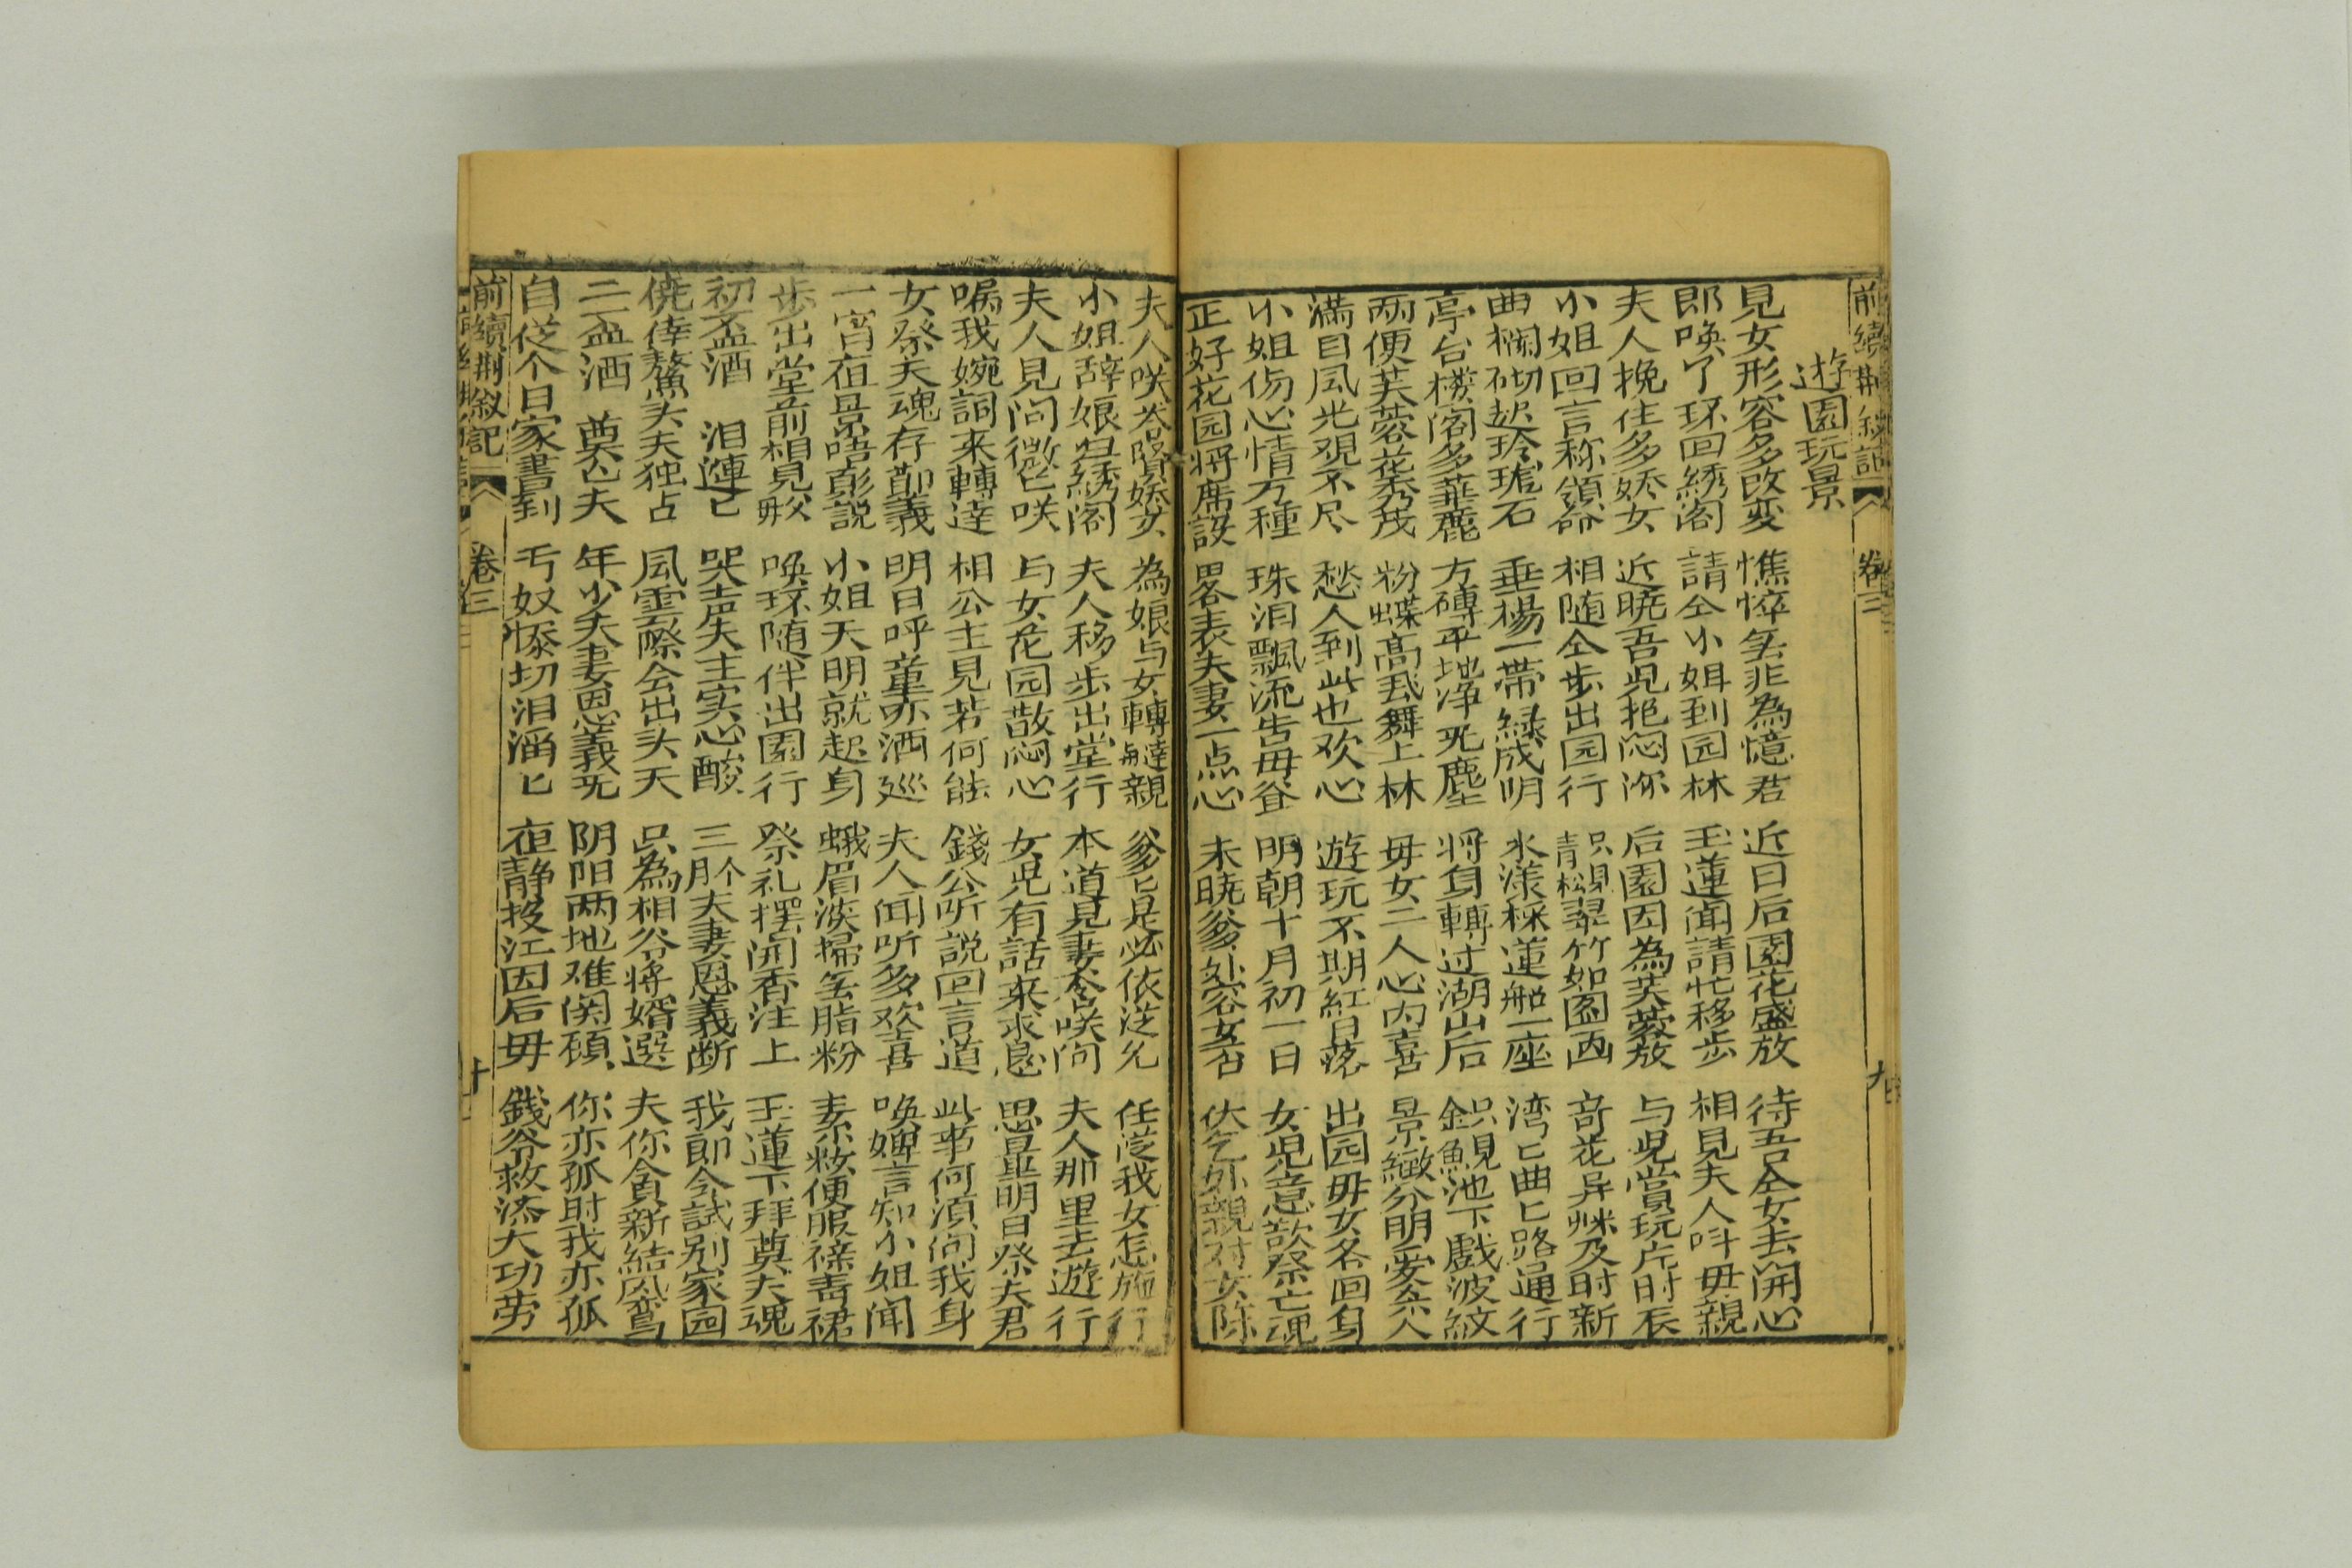 前續荆釵記 卷三 九
遊園玩景
見女形容多改変 憔悴無非為憶君 近日后園花盛放 待吾仝女去開心
即喚了环回綉阁 請仝小姐到园林 玉蓮闻請忙移步 相見夫人叫毋親
夫人挽住多娇女 近晓吾児抱闷深 后園因為芙蓉放 与児賞玩片时辰
小姐回言称領命 相随仝步出园行 只見青松翠竹如圍西 奇花异草及时新
曲栏砌起玲珑石 垂楊一帶緑成明 水漾採蓮船一座 湾匕曲匕路通行
亭台楼阁多華麗 方磚平地净无塵 将身轉过湖山后 只見金魚池下戲波紋
兩便芙蓉花秀茂 粉蝶高飛舞上林 毋女二人心内喜 景緻分明愛杀人
滿目风光覌不尽 愁人到此也欢心 遊玩不期紅日落 出园毋女各回身
小姐伤心情万種 珠泪飄流告毋爺 明朝十月初一日 女児意欲祭亡魂
正好花园将席設 畧表夫妻一点心 未晓爹爹容女否 伏乞外親对女陈
夫人咲答賢娇女 為娘与女轉達親 爹匕是必依從允 任從我女怎施行
小姐辞娘归綉阁 夫人移步出堂行 本道見妻含咲问 夫人那里去遊行
夫人見问微匕咲 与女花园散闷心 女児有話来求懇 思量明日祭夫君
嘱我婉詞来轉達 相公主見若何能 錢公听説回言道 此事何須问我身
女祭夫魂存節義 明日呼童办洒筵 夫人闻听多欢喜 喚婢言知小姐闻
一宵夜景唔彭説 小姐天明就起身 蛾眉淡掃無脂粉 素籹便服襐青裙
步出堂前相見毋 喚环随伴出園行 祭礼擺開香注上 玉蓮下拜奠夫魂
初盃酒 泪漣匕 哭声夫主実心酸 三个月夫妻恩義断 我郎今試别家园
僥倖鰲头夫独占 風雲際会出头天 只為相爷将婿選 夫你貪新結凤鸾
二盃酒 奠亡夫 年少夫妻恩義无 阴阳两地难関顧 你亦孤时我亦孤
自從个日家書到 亏奴惨切泪滔匕 夜静投江因后毋 錢爷救添大功劳
前續荆釵記 卷三 十